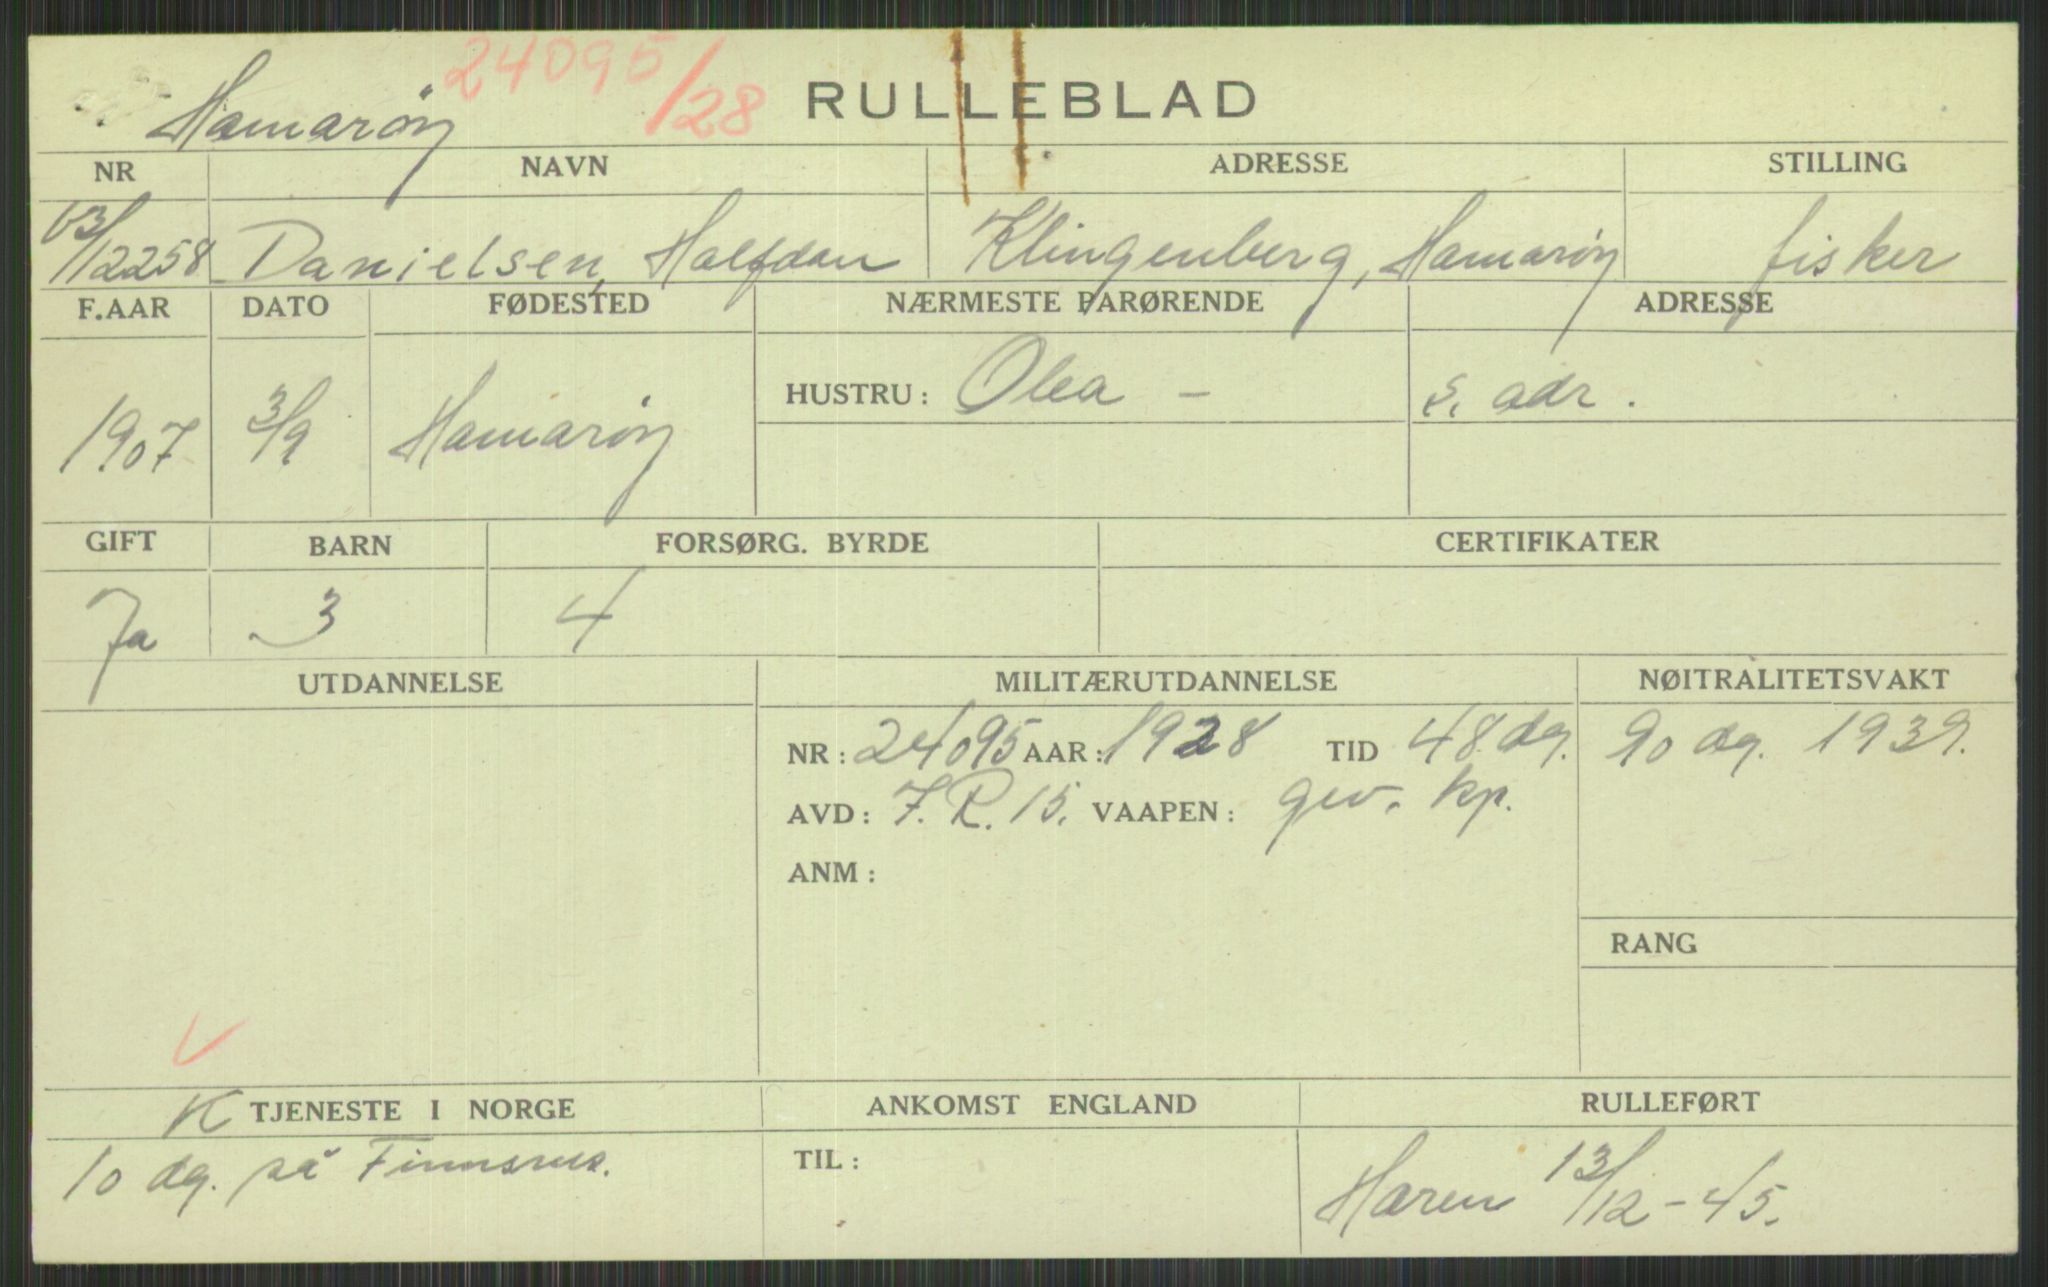 Hamarøy 24095/28 RULLEBLAD
NR NAVN ADRESSE STILLING
V3/12258 Danielsen, Halfdan Klingenberg, Hamarøy fisker
F.AAR DATO FØDESTED NÆRMESTE PARØRENDE ADRESSE
1907 3/9 Hamarøy HUSTRU: Olea - s. adr.
GIFT BARN FORSØRG. BYRDE CERTIFIKATER
Ja 3 4
UTDANNELSE MILITÆRUTDANNELSE NØITRALITETSVAKT
NR: 24095 AAR: 1928 TID 48 dg. 90 dg. 1939.
AVD: I.R. 15. VAAPEN: gev. kp.
ANM:
RANG
V
K TJENESTE I NORGE ANKOMST ENGLAND RULLEFØRT
10 dg. på Finnsnes. TIL: Haren 13/12-45.